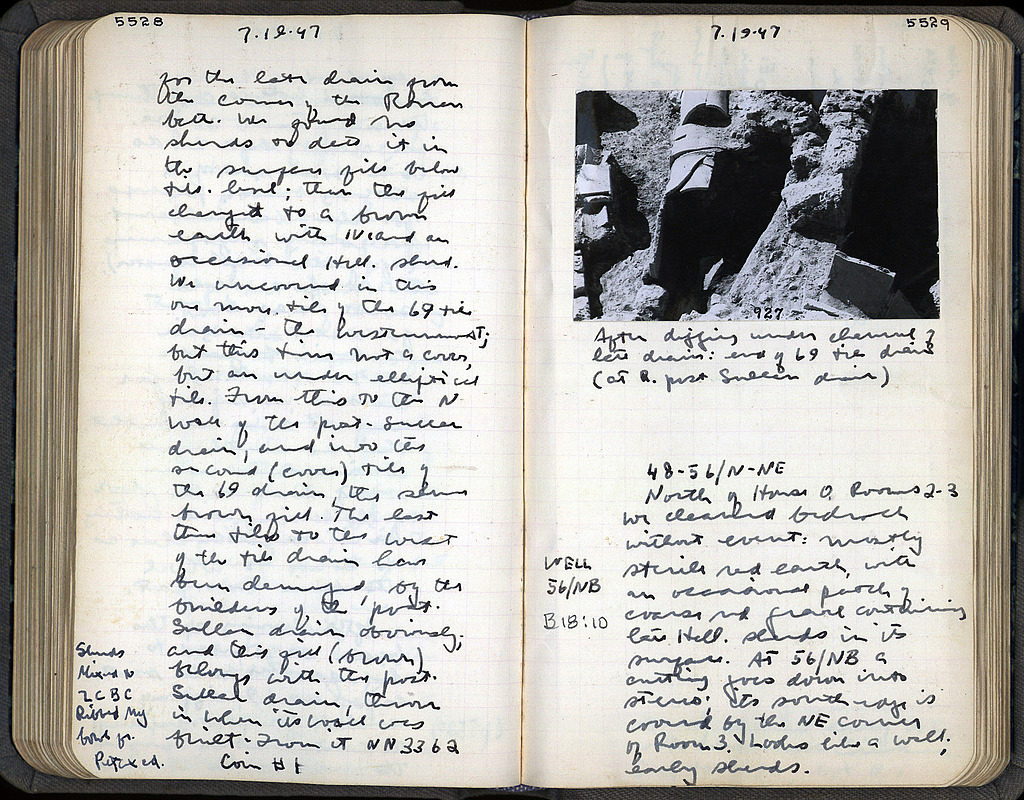 5528
7.18.47
for the late drain from
the corner of the Roman
bath. We found no
sherds to date it in
the surface fill below
tile level; then the fill
changed to a brown
earth with IV and an
occasional Hell. sherd.
We uncovered in this
one more tile of the 69 tile
drain - the westernmost;
but this time not a cover,
but an under elliptical
tile. From this to the N
wall of the post-Sullan
drain, and into the
second (cover) tile of
the 69 drain, the same
brown fill. The last
three tiles to the west
of the tile drain have
been damaged by the
builders of the post-
Sullan drain obviously,
and this fill (brown)
belongs with the post-
Sullan drain, thrown
in when its wall was
built. From it NN 3362
Coin #1
Sherds
Mixed to
2 C BC
Ribbed Meg
bowl fr.
5529
7.19.47
927
After digging under channel of
late drain: end of 69 tile drain
(at R. post Sullan drain)
48-56/N-NE
North of House O, Rooms 2-3
we cleaned bedrock
without event: mostly
sterile red earth, with
an occasional patch of
coarse red gravel containing
late Hell. sherds in its
surface. At 56/NB a
cutting goes down into
stereo; its south edge is
covered by the NE corner
of Room 3. Looks like a well;
early sherds.
WELL
56/NB
B18:10